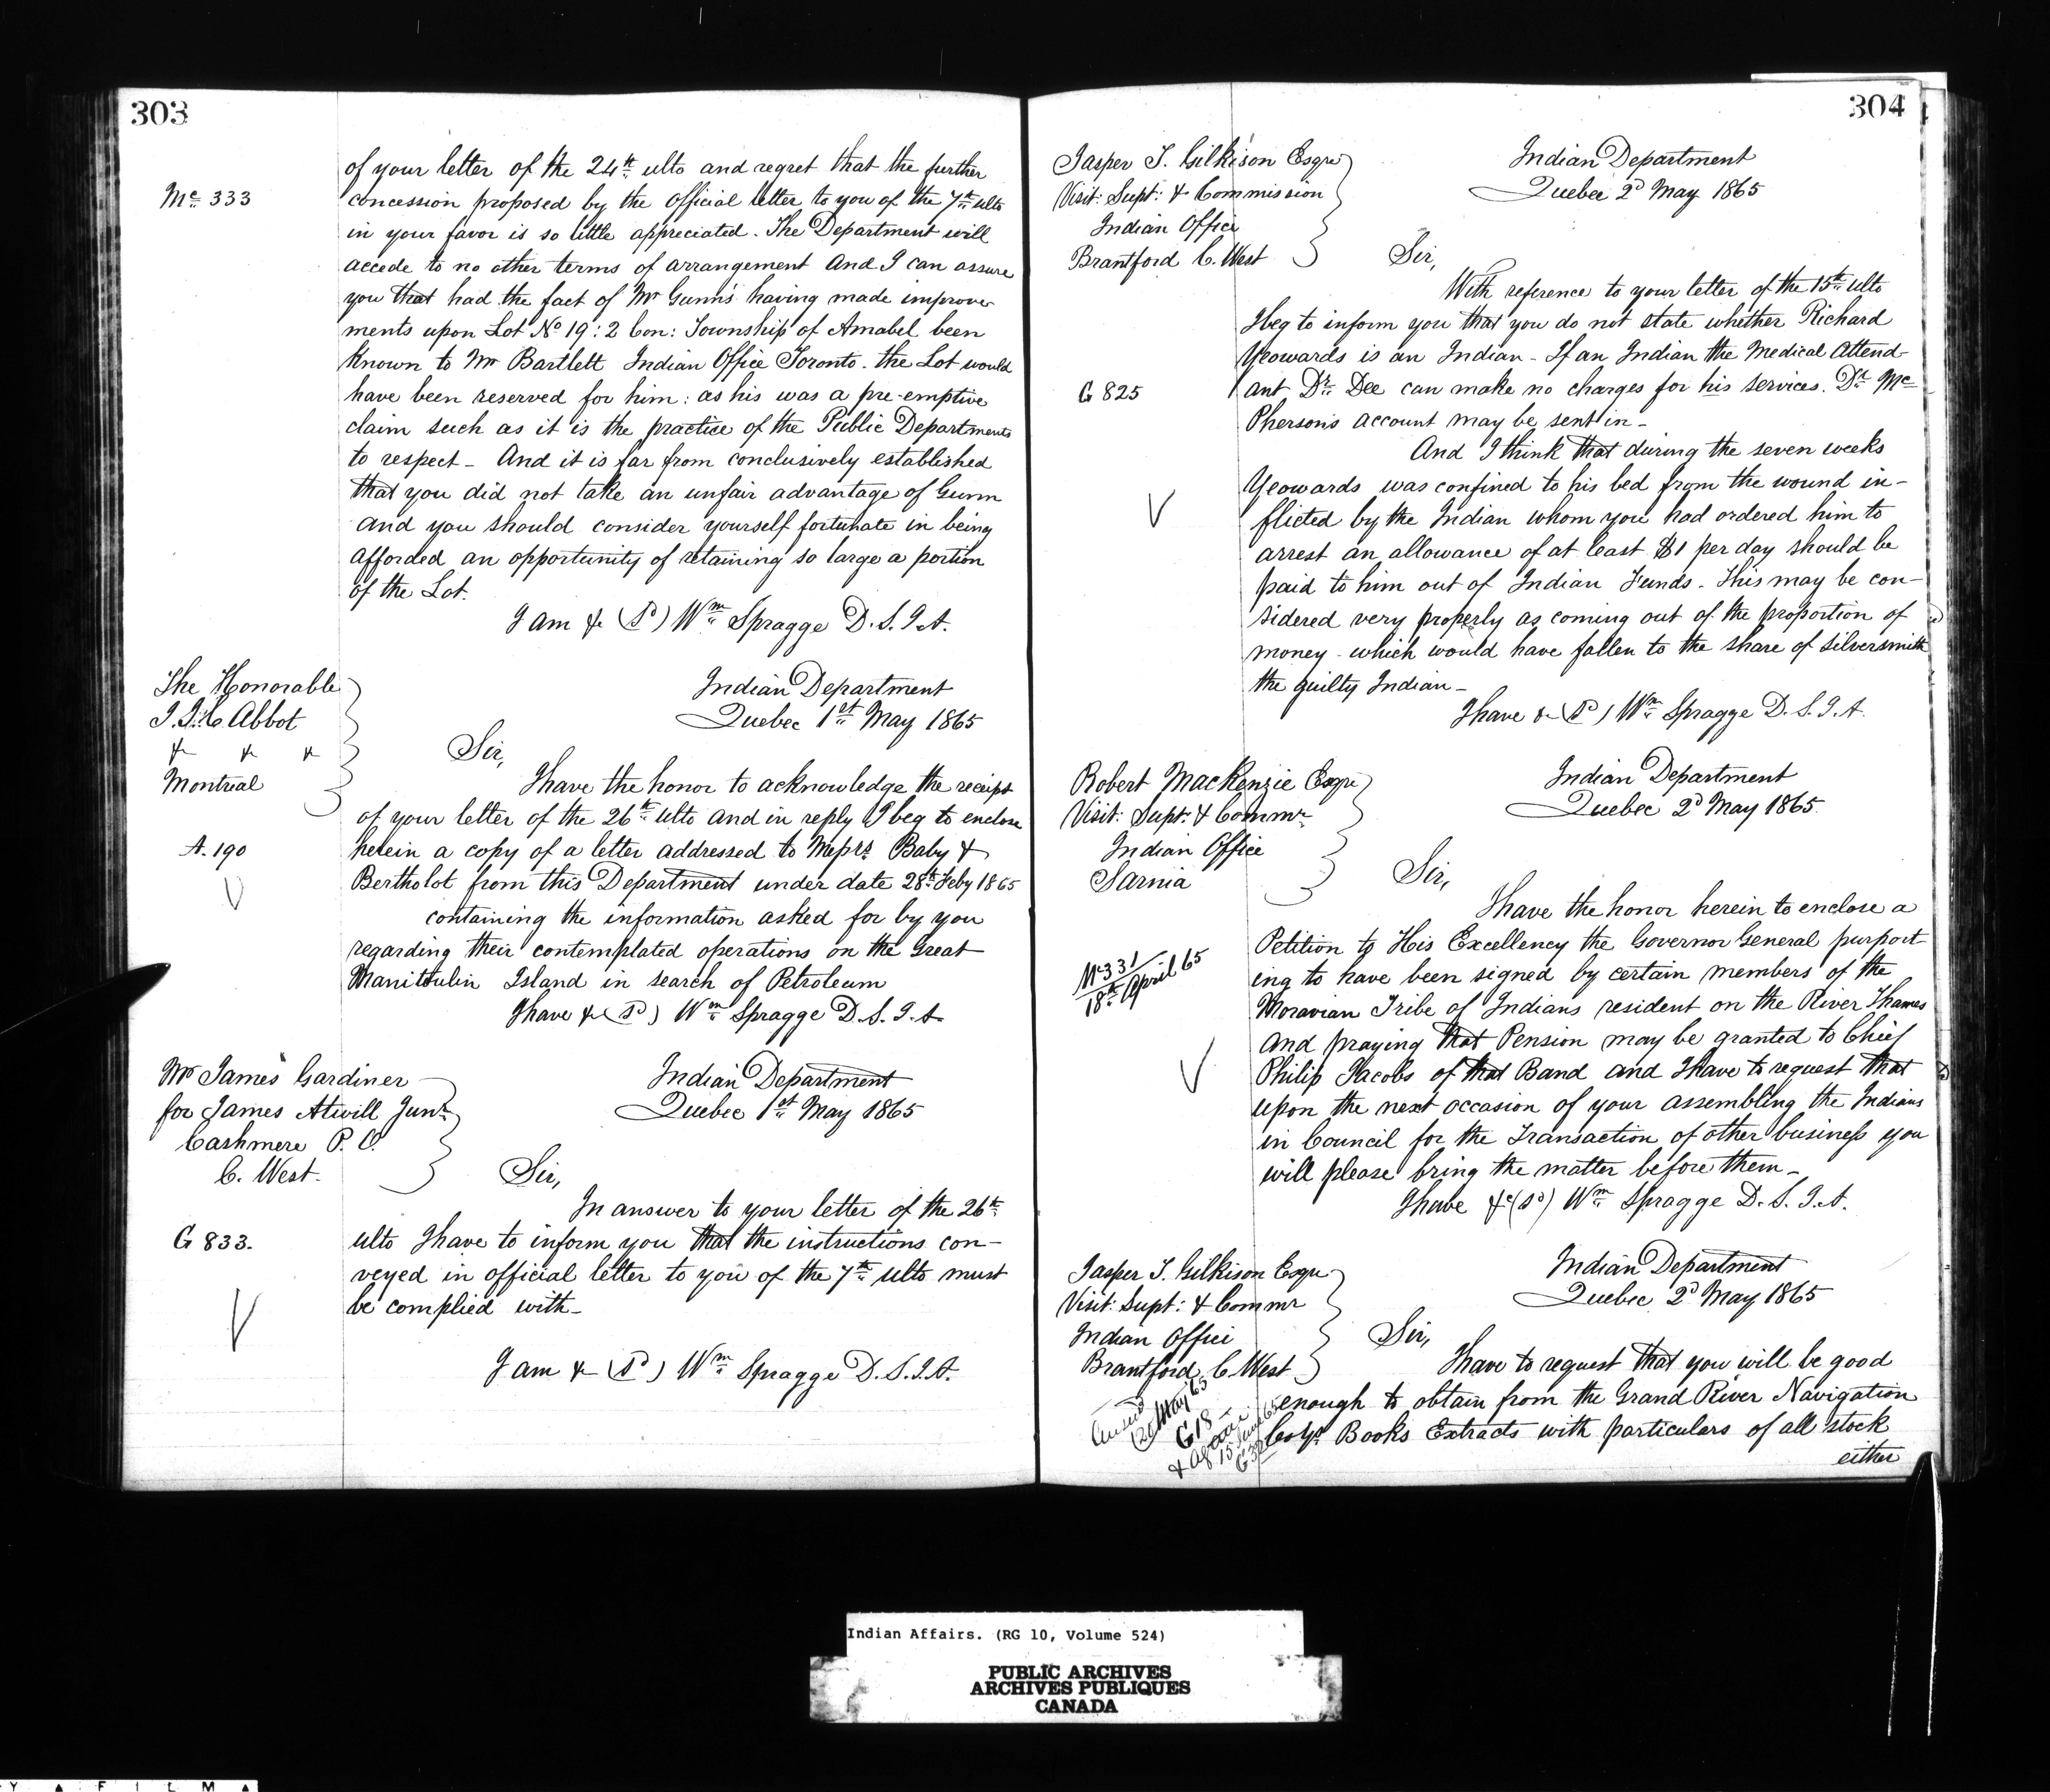 303
of your letter of the 24th ulto and regret that the further
Mc 333
concession proposed by the Official letter to you of the 7th ulto
in your favor is so little appreciated. The Department will
accede to no other terms of arrangement And I can assure
you that had the fact of Mr Gunn's having made improve-
ments upon Lot No 19: 2 Con: Township of Amabel been
known to Mr Bartlett Indian Office Toronto. the Lot would
have been reserved for him: as his was a pre-emptive
claim such as it is the practice of the Public Departments
to respect - And it is far from conclusively established
that you did not take an unfair advantage of Gunn
and you should consider yourself fortunate in being
afforded an opportunity of retaining so large a portion
of the Lot.
I am & (Sd) Wm Spragge D.S.I.A.
The Honorable
J.J.C. Abbot
& & &
Montreal
Indian Department
Quebec 1st May 1865
Sir,
I have the honor to acknowledge the receipt
of your letter of the 26th ulto and in reply I beg to enclose
A. 190
herein a copy of a letter addressed to Messrs Baby &
Bertholot from this Department under date 28th Feby 1865
containing the information asked for by you
regarding their contemplated operations on the Great
Manitoulin Island in search of Petroleum
I have & (Sd) Wm Spragge D.S.I.A.
Mr James Gardiner
for James Atwill Junr
Cashmere P.O.
C. West.
Indian Department
Quebec 1st May 1865
Sir,
In answer to your letter of the 26th
G 833.
ulto I have to inform you that the instructions con-
veyed in official letter to you of the 7th ulto must
be complied with -
I am & (Sd) Wm Spragge D.S.I.A.
304
Jasper T. Gilkison Esqre
Visit: Supt: & Commission
Indian Office
Brantford C. West
Indian Department
Quebec 2d May 1865
Sir,
With reference to your letter of the 15th ulto
I beg to inform you that you do not state whether Richard
Yeowards is an Indian - If an Indian the Medical Attend-
G 825
ant Dr Dee can make no charges for his services. Dr Mc
Pherson's account may be sent in -
And I think that during the seven weeks
Yeowards was confined to his bed from the wound in-
flicted by the Indian whom you had ordered him to
arrest an allowance of at least $1 per day should be
paid to him out of Indian Funds - This may be con-
sidered very properly as coming out of the proportion of
money - which would have fallen to the share of Silversmith
the guilty Indian -
I have & (Sd) Wm Spragge D.S.I.A.
Robert MacKenzie Esqre
Visit: Supt: & Commr
Indian Office
Sarnia
Indian Department
Quebec 2d May 1865.
Sir,
I have the honor herein to enclose a
Mc 331
18th April 65
Petition to His Excellency the Governor General purport-
ing to have been signed by certain members of the
Moravian Tribe of Indians resident on the River Thames
and praying that Pension may be granted to Chief
Philip Jacobs of that Band and I have to request that
upon the next occasion of your assembling the Indians
in Council for the Transaction of other business you
will please bring the matter before them -
I have &c (Sd) Wm Spragge D.S.I.A.
Jasper T. Gilkison Esqre
Visit: Supt: & Commr
Indian Office
Brantford C. West
Indian Department
Quebec 2d May 1865
Sir,
I have to request that you will be good
enough to obtain from the Grand River Navigation
Coys Books Extracts with particulars of all stock
either
May 65
G 18
15 June 65
Indian Affairs. (RG 10, Volume 524)
PUBLIC ARCHIVES
ARCHIVES PUBLIQUES
CANADA